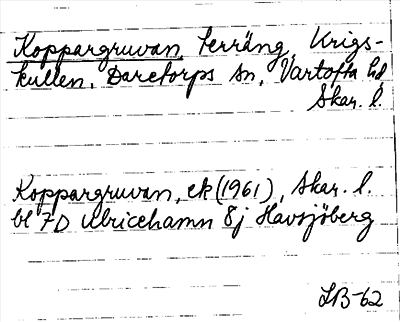 Koppargruvan, terräng, Krigs-
kullen, Daretorps sn, Vartofta hd
Skar. l.
Koppargruvan, ek (1961), Skar. l.
bl 7D Ulricehamn 8j Havsjöberg
LB-62